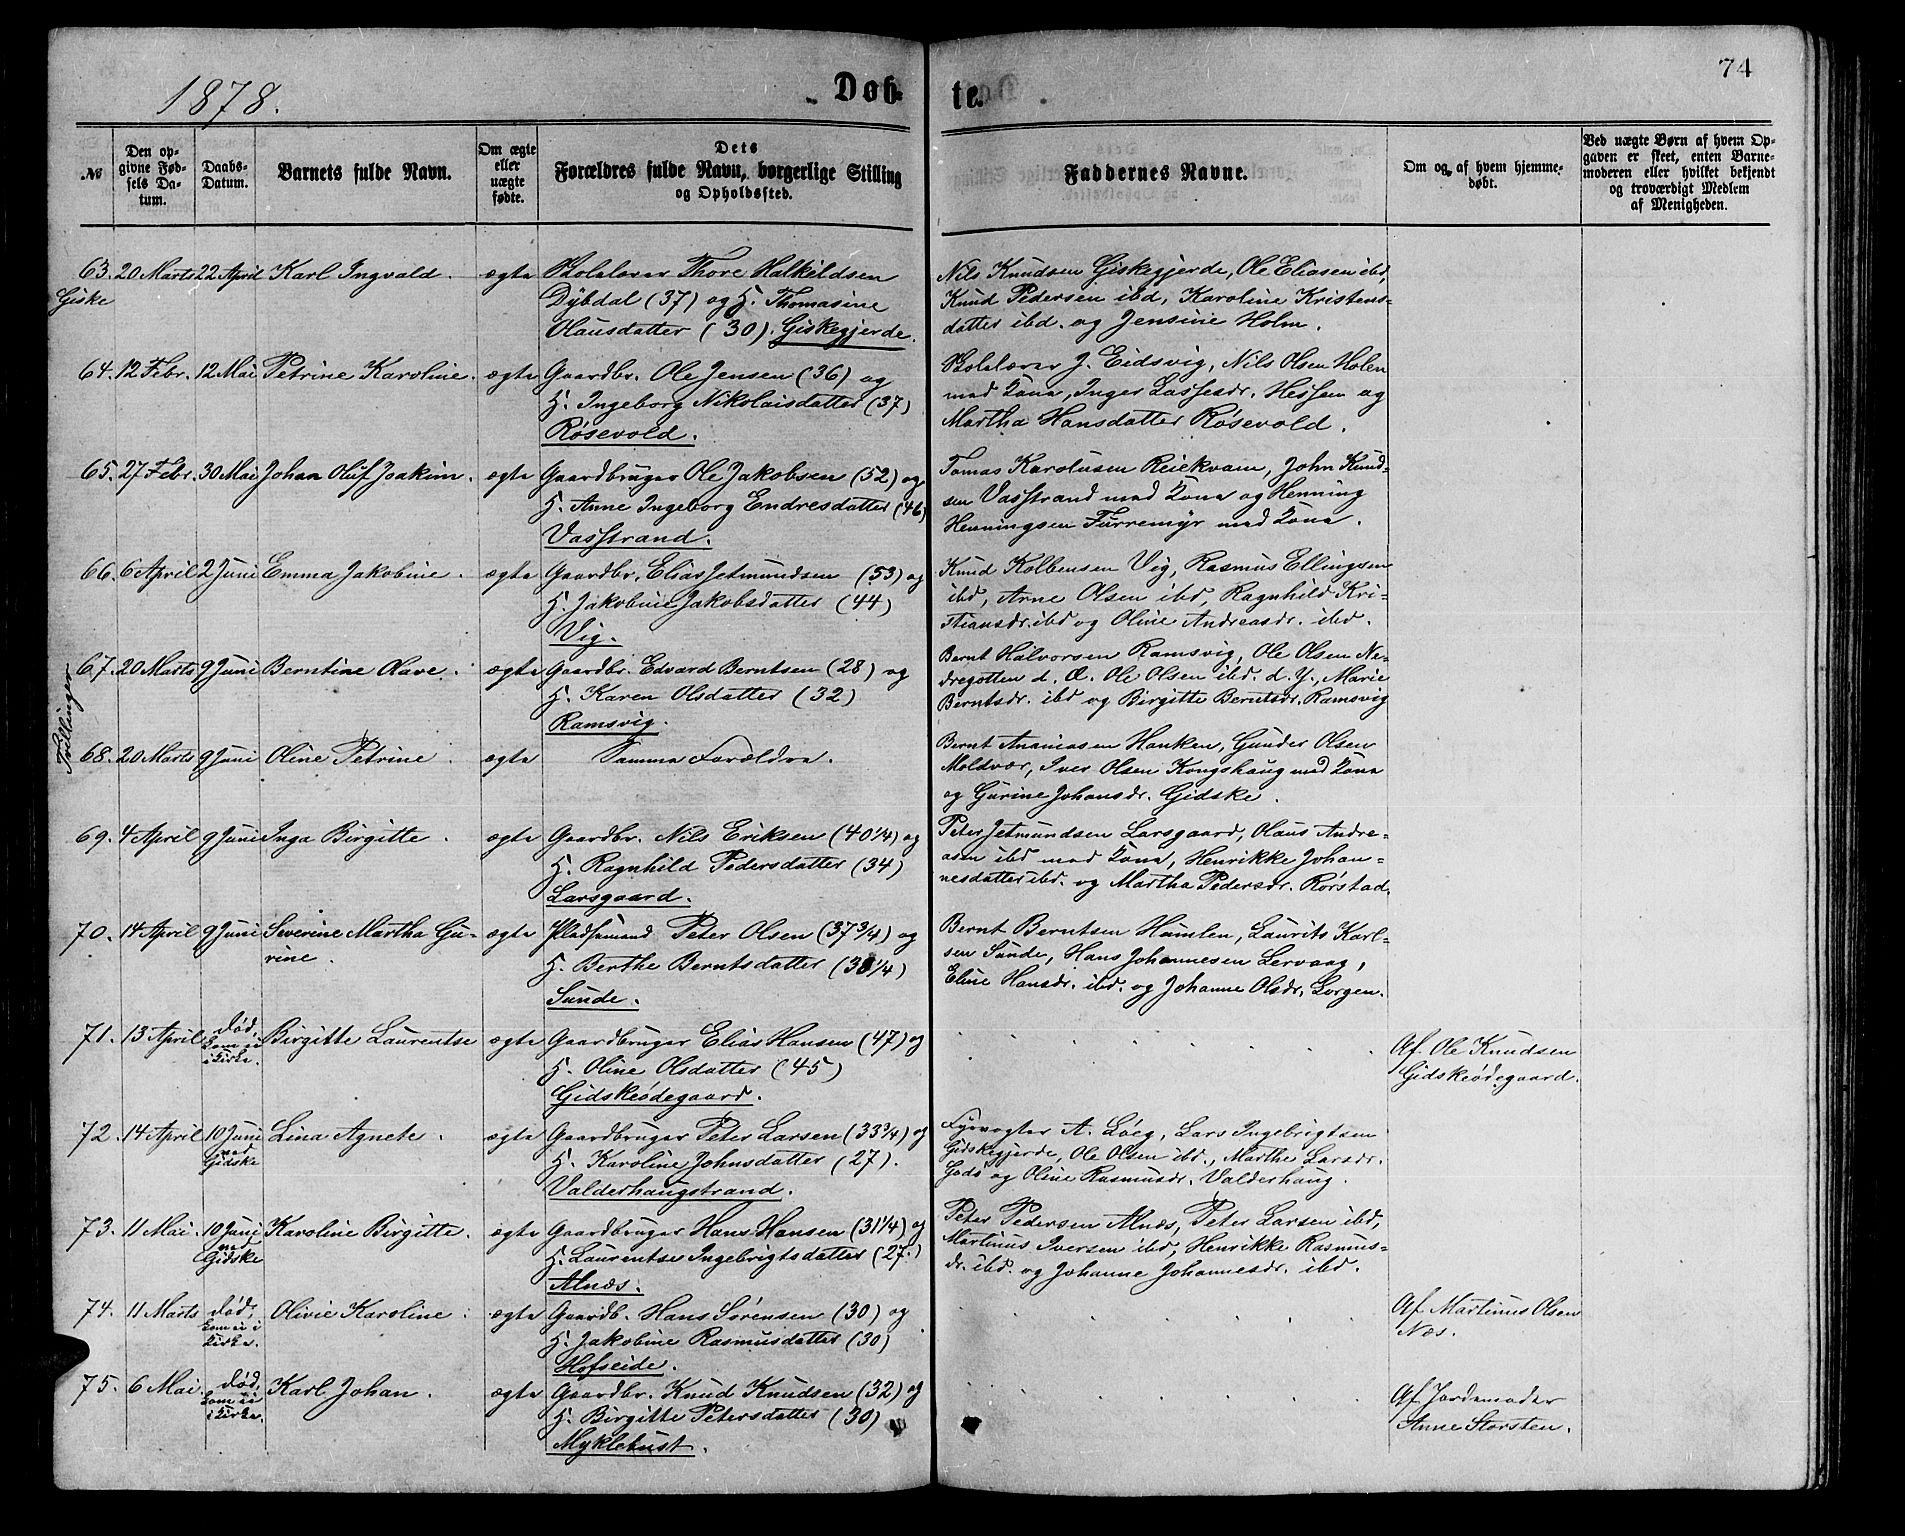 1878.
Døb-
te.
74
№
Den op-
givne Fød-
sels Da-
tum.
Daabs-
Datum.
Barnets fulde Navn.
Om ægte
eller
uægte
fødte.
Dets
Forældres fulde Navn, borgerlige Stilling
og Opholdssted.
Faddernes Navne.
Om og, af hvem hjemme-
døbt.
Ved uægte Børn af hvem Op-
gaven er skeet, enten Barne-
moderen eller hvilket bekjendt
og troværdigt Medlem
af Menigheden.
63. 20 Marts 22 April Karl Ingvald. ægte Skolelærer Thore Halkildsen
Giske
Dybdal (37) og H. Thomasine
Olausdatter (30). Giskegjerde.
Nils Knudsen Giskegjerde, Ole Eliasen ibd,
Knud Pedersen ibd, Karoline Kristens-
datter ibd. og Jensine Holm.
64. 12 Febr. 12 Mai Petrine Karoline. ægte Gaardbr. Ole Jensen (36) og
H. Ingeborg Nikolaisdatter (37)
Røsevold.
Skolelærer J. Eidsvig, Nils Olsen Holen
med Kona, Inger Lassesdr. Hessen og
Martha Hansdatter Røsevold.
65. 27 Febr. 30 Mai Johan Oluf Joakim. ægte Gaardbruger Ole Jakobsen (52) og
H. Anne Ingeborg Endresdatter (46)
Vasstrand.
Tomas Karolusen Reiekvam, John Knud-
sen Vasstrand med Kona og Henning
Henningsen Furremyr med Kona.
66. 6 April 2 Juni Emma Jakobine. ægte Gaardbr. Elias Jetmundsen (53) og
H. Jakobine Jakobsdatter (44)
Vig.
Knud Kolbensen Vig, Rasmus Ellingsen
ibd, Arne Olsen ibd, Ragnhild Kri-
stiansdr. ibd og Oline Andreasdr. ibd.
Tvillinger
67. 20 Marts 9 Juni Berntine Olave. ægte Gaardbr. Edvard Berntsen (28) og
H. Karen Olsdatter (32)
Ramsvig.
Bernt Halvorsen Ramsvig, Ole Olsen Ne-
dregotten d. Æ. Ole Olsen ibd. d. Y., Marie
Berntsdr. ibd og Birgitte Berntsdr. Ramsvig
68. 20 Marts 9 Juni Oline Petrine. ægte Samme Forældre.
Bernt Ananiasen Hanken, Gunder Olsen
Moldvær, Iver Olsen Kongshaug med Kona
og Gurine Johansdr. Gidske.
69. 4 April 9 Juni Inga Birgitte. ægte Gaardbr. Nils Eriksen (40 1/4) og
H. Ragnhild Pedersdatter (34)
Larsgaard.
Peter Jetmundsen Larsgaard, Olaus Andre-
asen ibd med Kona, Henrikke Johan-
nesdatter ibd. og Martha Pedersdr. Rørstad.
70. 14 April 9 Juni Severine Martha Gu- ægte Pladsemand Peter Olsen (37 3/4) og
rine. H. Berthe Berntsdatter (38 1/4)
Sunde.
Bernt Berntsen Humlen, Laurits Karl-
sen Sunde, Hans Johannesen Lervaag,
Eline Hansdr. ibd. og Johanne Olsdr. Lorgen.
71. 13 April død, Birgitte Laurentse ægte Gaardbruger Elias Hansen (47) og
kom ei
i Kirke.
H. Oline Olsdatter (45)
Gidskeødegaard.
Af Ole Knudsen
Gidskeødegaard.
72. 14 April 10 Juni Lina Agnete. ægte Gaardbruger Peter Larsen (33 3/4) og
ved
Gidske
H. Karoline Johnsdatter (27).
Valderhaugstrand.
Fyrvogter A. Løeg, Lars Ingebrigtsen
Gidskegjerde, Ole Olsen ibd., Marthe Larsdr.
Godø og Oline Rasmusdr. Valderhaug.
73. 11 Mai. 10 Juni Karoline Birgitte. ægte Gaardbruger Hans Hansen (31 1/4) og
Gidske
H. Laurentse Ingebrigtsdatter (27.)
Alnæs.
Peter Pedersen Alnæs, Peter Larsen ibd,
Martinus Iversen ibd, Henrikke Rasmus-
dr. ibd. og Johanne Johannesdr. ibd.
74. 11 Marts død, Olivie Karoline ægte Gaardb. Hans Sørensen (30) og
kom ei i
Kirke.
H. Jakobine Rasmusdatter (30)
Hofseide.
Af Martinus Olsen
Næs.
75. 6 Mai. død. Karl Johan. ægte Gaardbr. Knud Knudsen (32) og
kom ei
i Kirke.
H. Birgitte Petersdatter (30)
Myklebust.
Af Jordemoder
Anne Storsten.